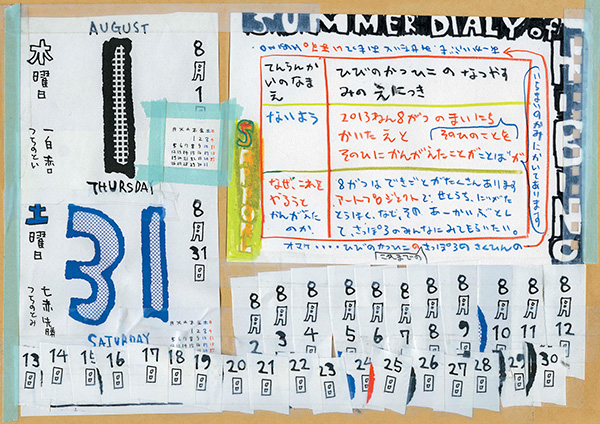 AUGUST
木
曜
日
8
月
1
一白 赤口
つちのとい
THURSDAY
土
曜
日
8
月
31
日
31
七赤 先勝
つちのとみ
SATURDAY
SUMMER DIALY of
HIBINO
てんらんか
いのなま
え
ひびのかつひこ の なつやす
みの えにっき
ないよう
2013ねん8がつ の まいにち
かいた えと そのひのことを
そのひにかんがえたことがことばが
いちまいのかみにかいてあります
なぜ、これを
やろうと
かんがえた
のか.
8がつはできごとがたくさんあります
アートプロジェクトで、せとうち、にいがた
とうほく、など、その あーかいぶとし
て、さっぽろのみんなにみてもらいたい。
オマケ・・・・ひびのかつひこのさっぽろのさくひんの
8 8 8 8 8 8 8 8 8 8 8
月 月 月 月 月 月 月 月 月 月 月
2 3 4 5 6 7 8 9 10 11 12
13 14 15 16 17 18 19 20 21 22 23 24 25 26 27 28 29 30
日 日 日 日 日 日 日 日 日 日 日 日 日 日 日 日 日 日